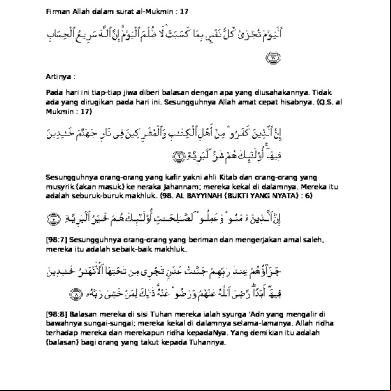 Firman Allah dalam surat al-Mukmin : 17
ٱلۡيَوۡمَ تُجۡزَىٰ كُلُّ نَفۡسِۭ بِمَا كَسَبَتۡۚ لَا ظُلۡمَ ٱلۡيَوۡمَۚ إِنَّ ٱللَّهَ سَرِيعُ ٱلۡحِسَابِ
١٧
Artinya :
Pada hari ini tiap-tiap jiwa diberi balasan dengan apa yang diusahakannya. Tidak
ada yang dirugikan pada hari ini. Sesungguhnya Allah amat cepat hisabnya. (Q.S. al
Mukmin : 17)
إِنَّ ٱلَّذِينَ كَفَرُواْ مِنۡ أَهۡلِ ٱلۡكِتَٰبِ وَٱلۡمُشۡرِكِينَ فِي نَارِ جَهَنَّمَ خَٰلِدِينَ
فِيهَآۚ أُوْلَٰٓئِكَ هُمۡ شَرُّ ٱلۡبَرِيَّةِ ٦
Sesungguhnya orang-orang yang kafir yakni ahli Kitab dan orang-orang yang
musyrik (akan masuk) ke neraka Jahannam; mereka kekal di dalamnya. Mereka itu
adalah seburuk-buruk makhluk. (98. AL BAYYINAH (BUKTI YANG NYATA) : 6)
إِنَّ ٱلَّذِينَ ءَامَنُواْ وَعَمِلُواْ ٱلصَّٰلِحَٰتِ أُوْلَٰٓئِكَ هُمۡ خَيۡرُ ٱلۡبَرِيَّةِ ٧
[98:7] Sesungguhnya orang-orang yang beriman dan mengerjakan amal saleh,
mereka itu adalah sebaik-baik makhluk.
جَزَآؤُهُمۡ عِندَ رَبِّهِمۡ جَنَّٰتُ عَدۡنٖ تَجۡرِي مِن تَحۡتِهَا ٱلۡأَنۡهَٰرُ خَٰلِدِينَ
فِيهَآ أَبَدٗاۖ رَّضِيَ ٱللَّهُ عَنۡهُمۡ وَرَضُواْ عَنۡهُۚ ذَٰلِكَ لِمَنۡ خَشِيَ رَبَّهُۥ ٨
[98:8] Balasan mereka di sisi Tuhan mereka ialah syurga 'Adn yang mengalir di
bawahnya sungai-sungai; mereka kekal di dalamnya selama-lamanya. Allah ridha
terhadap mereka dan merekapun ridha kepadaNya. Yang demikian itu adalah
(balasan) bagi orang yang takut kepada Tuhannya.